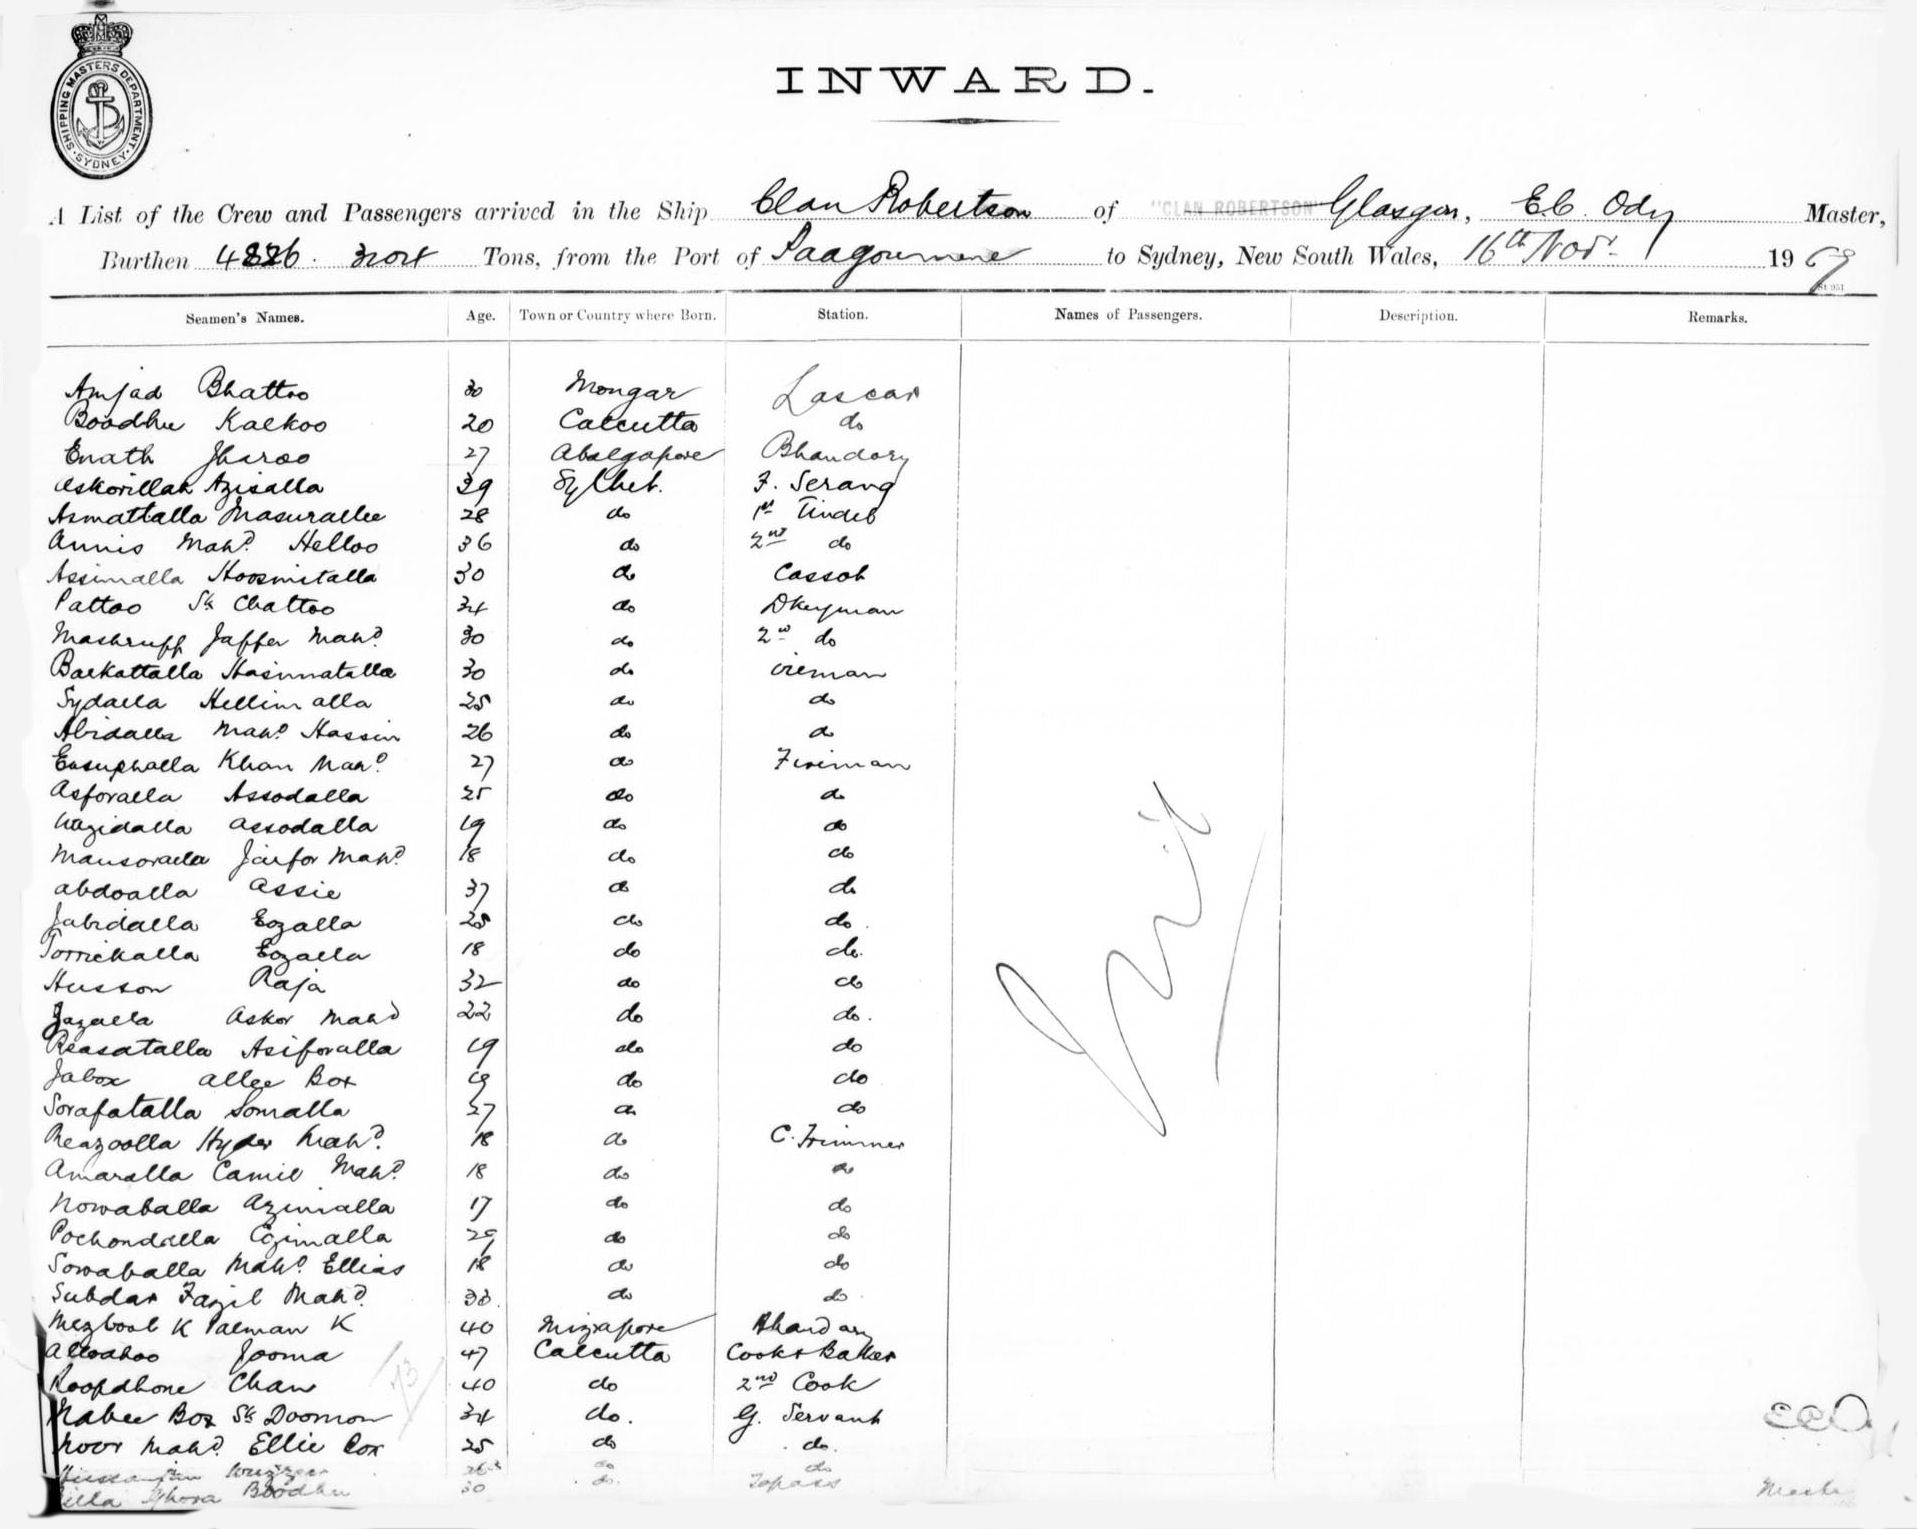 SHIPPING MASTERS DEPARTMENT. SYDNEY.
INWARD.
A List of the Crew and Passengers arrived in the Ship Clan Robertson of "CLAN ROBERTSON" Glasgow, E.C. Ody Master,
Burthen Tons, from the Port of Paagoumene to Sydney, New South Wales, 16th Novr. 19
Seamen's Names. Age. Town or Country where Born. Station. Names of Passengers. Description. Remarks.
Amjad Bhattoo 30 Mongar Lascar
Boodhu Kalkoo 20 Calcutta do
Enath Jharoo 27 Bhandary
Askorillah Azisalla 39 Sylhet. F. Serang
Asmattalla Masurallee 28 do 1st Tindal
Annis Mahd. Helloo 36 do 2nd do
Assimalla Hoosmitalla 30 do Cassob
Pattoo Sk Chattoo 34 do Dkeyman
Mashruff Jaffer Mahd 30 do 2nd do
Barkattalla Hasimatalla 30 do Oileman
Sydalla Hellimalla 25 do do
Abidalla Mahd. Hassin 26 do do
Eusuphalla Khan Mahd. 27 do Fireman
Asforalla Assodalla 25 do do
Wazidalla Assodalla 19 do do
Mansoralla Jaifor Mahd. 18 do do
Abdoalla Assie 37 do do
Jabidalla Eozalla 28 do do.
Torrickalla Eozalla 18 do do.
Husson Raja 32 do do
Jazalla Asker Mahd 22 do do.
Reasatalla Asiforalla 19 do do
Jabox Allee Box 19 do do
Sorafatalla Somalla 27 do do
Reazoolla Hyder Mahd. 18 do C. Trimmer
Amaralla Camil Mahd. 18 do do
Nowaballa Azimalla 17 do do
Pochondalla Ezimalla 29 do do
Sowaballa Mahd. Ellias 18 do do
Subdar Fazil Mahd. 33. do do.
Mezbool K Palman K 40 Mirzapore Bhandary
Allwahoo Jooma 47 Calcutta Cook & Baker
Roopdhone Chan 40 do 2nd Cook
Nabee Box Sk Doomon 34 do. G. Servant
Noor Mahd. Ellie Box 25 do do.
26 do do
Ghora Boodhu 30 do. Topass
Nil
ECO
Master